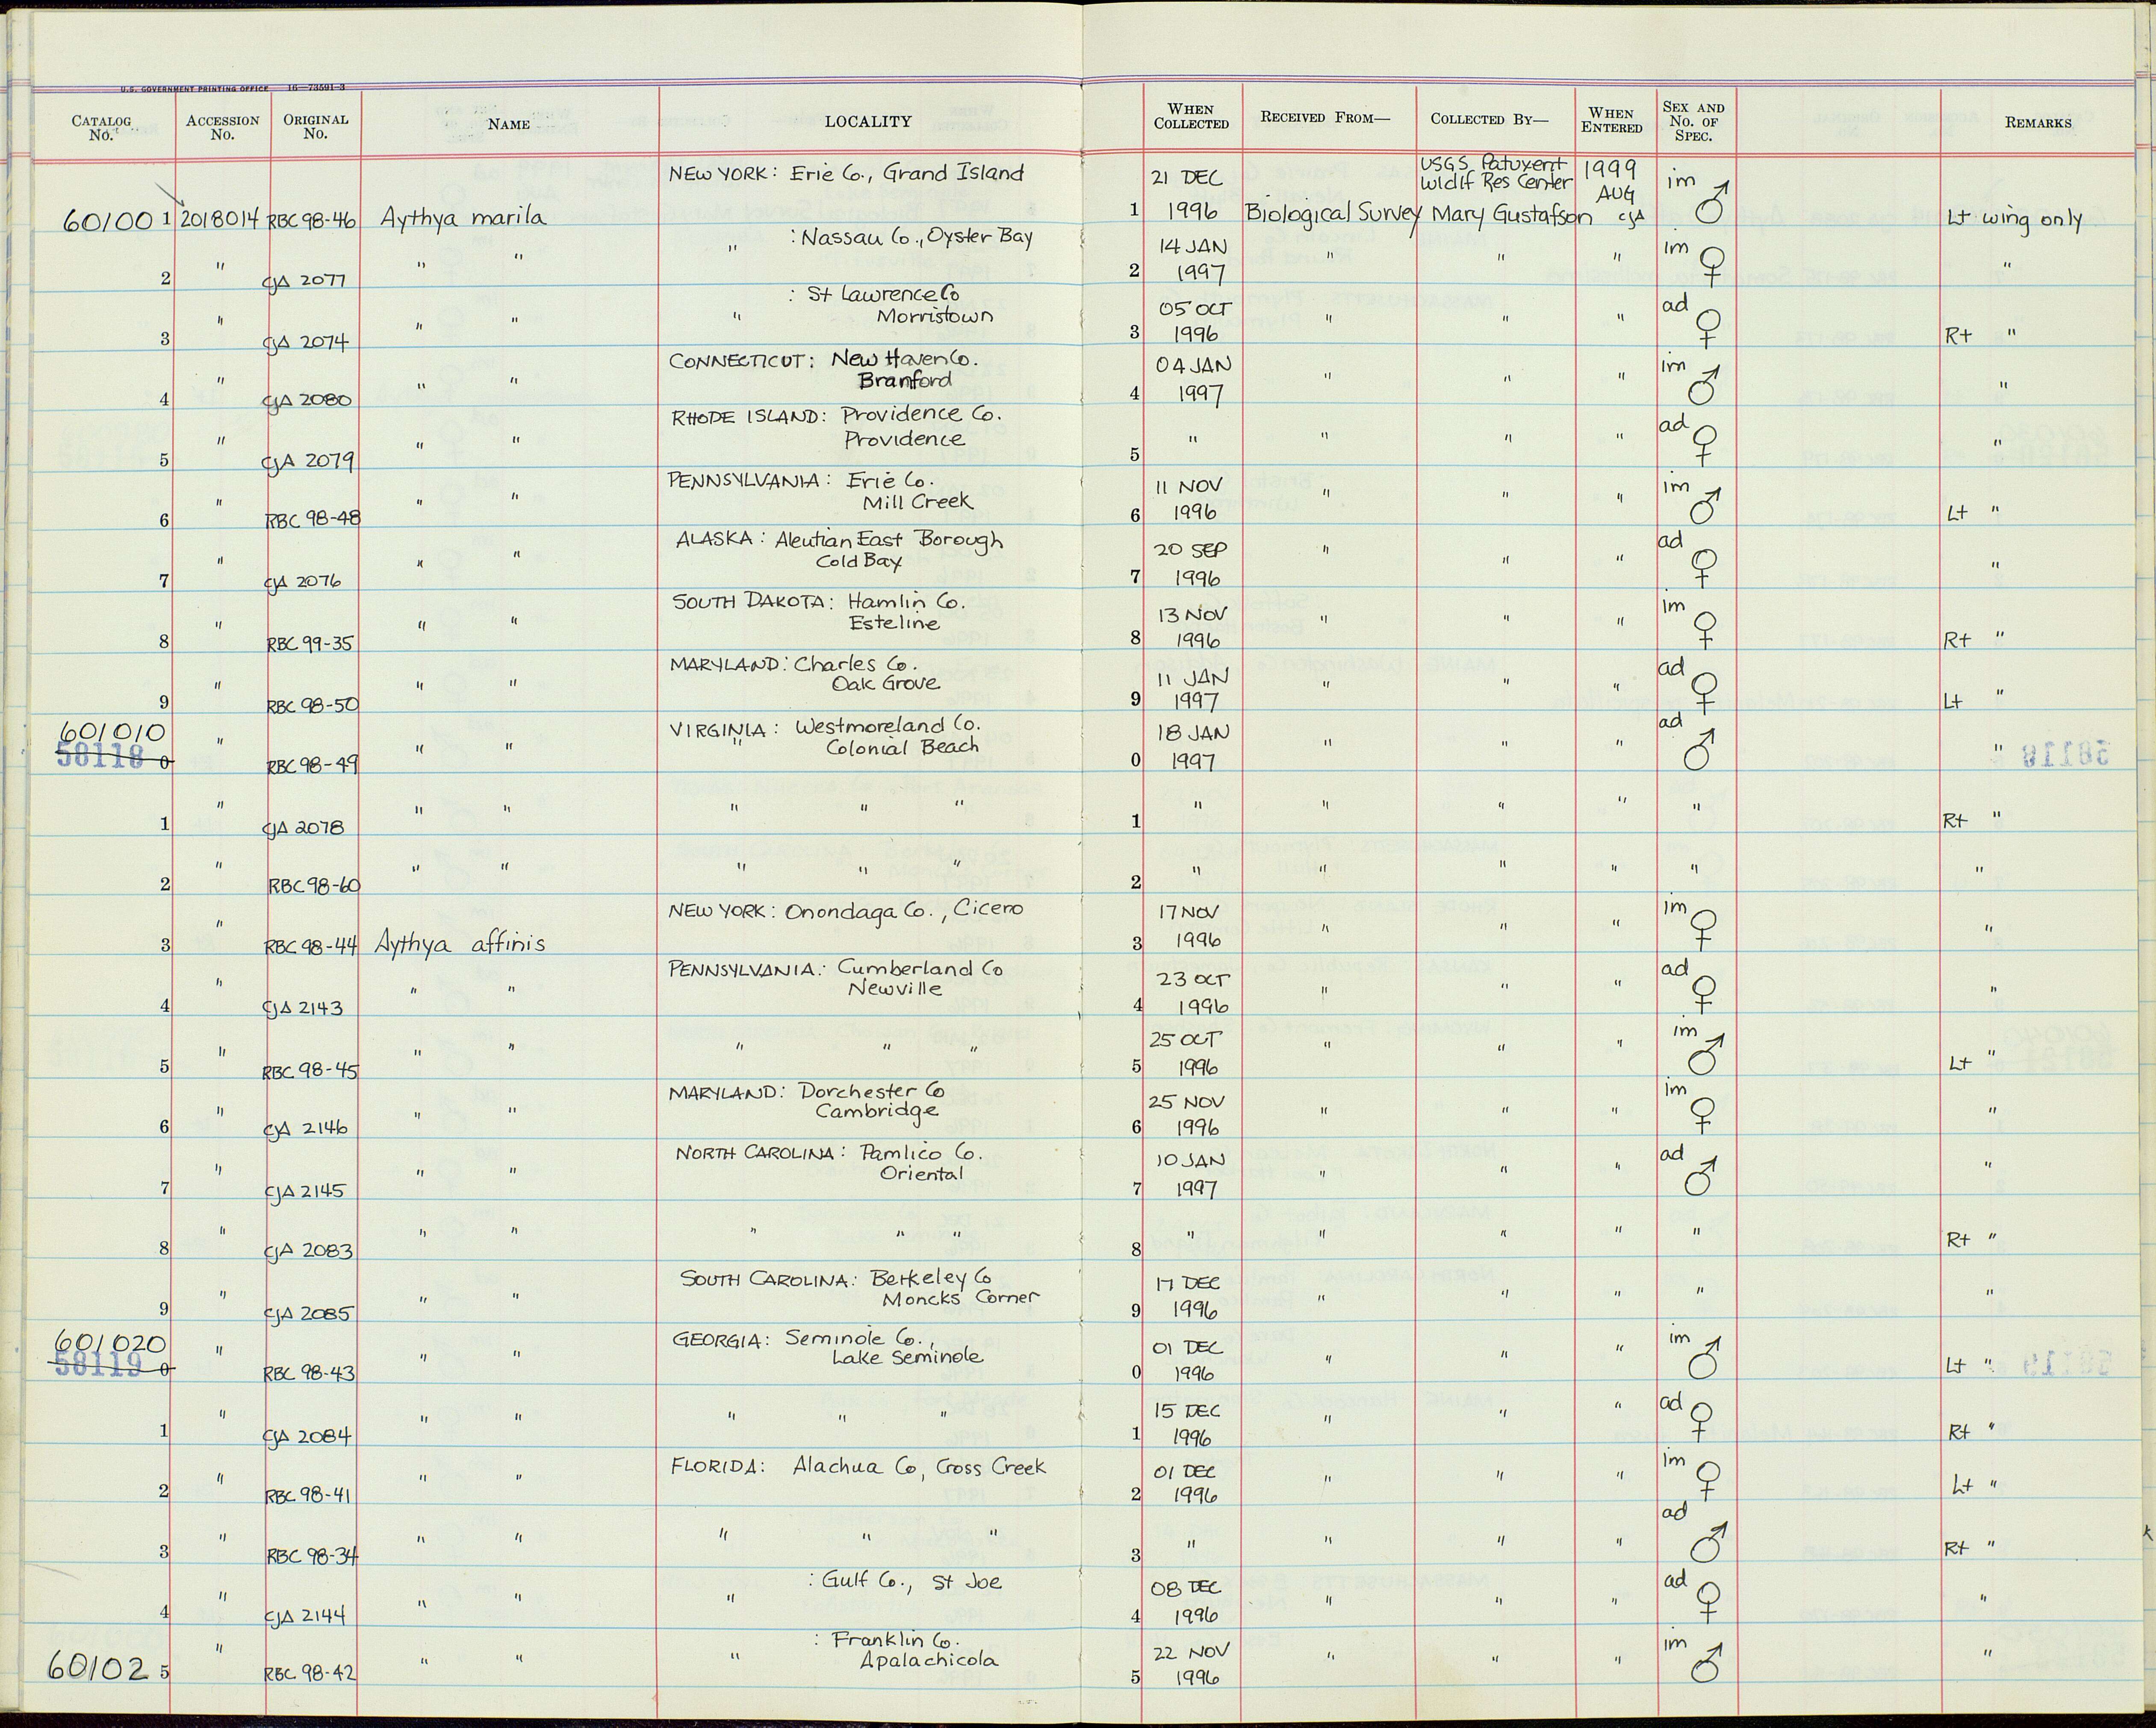 U.S. GOVERNMENT PRINTING OFFICE 16—73591-3
CATALOG No. ACCESSION No. ORIGINAL No. NAME LOCALITY WHEN COLLECTED RECEIVED FROM— COLLECTED BY— WHEN ENTERED SEX AND No. OF SPEC. REMARKS
NEW YORK: Erie Co., Grand Island 21 DEC USGS Patuxent Wldlf Res Center 1999 AUG im
60100 1 2018014 RBC 98-46 Aythya marila 1 1996 Biological Survey Mary Gustafson CJA ♂ Lt wing only
" : Nassau Co., Oyster Bay 14 JAN im
2 " CJA 2077 " " 2 1997 " " " ♀ "
: St Lawrence Co 05 OCT ad
3 " CJA 2074 " " " Morristown 3 1996 " " " ♀ Rt "
CONNECTICUT: New Haven Co. 04 JAN im
4 " CJA 2080 " " Branford 4 1997 " " " ♂ "
RHODE ISLAND: Providence Co. ad
5 " CJA 2079 " " Providence 5 " " " " ♀ "
PENNSYLVANIA: Erie Co. 11 NOV im
6 " RBC 98-48 " " Mill Creek 6 1996 " " " ♂ Lt "
ALASKA: Aleutian East Borough 20 SEP ad
7 " CJA 2076 " " Cold Bay 7 1996 " " " ♀ "
SOUTH DAKOTA: Hamlin Co. 13 NOV im
8 " RBC 99-35 " " Esteline 8 1996 " " " ♀ Rt "
MARYLAND: Charles Co. 11 JAN ad
9 " RBC 98-50 " " Oak Grove 9 1997 " " " ♀ Lt "
601010 VIRGINIA: Westmoreland Co. 18 JAN ad
58118 0 " RBC 98-49 " " " Colonial Beach 0 1997 " " " ♂ "
1 " CJA 2078 " " " " " 1 " " " " " Rt "
2 " RBC 98-60 " " " " " 2 " " " " " "
NEW YORK: Onondaga Co., Cicero 17 NOV im
3 " RBC 98-44 Aythya affinis 3 1996 " " " ♀ "
PENNSYLVANIA: Cumberland Co 23 OCT ad
4 " CJA 2143 " " Newville 4 1996 " " " ♀ "
25 OCT im
5 " RBC 98-45 " " " " " 5 1996 " " " ♂ Lt "
MARYLAND: Dorchester Co 25 NOV im
6 " CJA 2146 " " Cambridge 6 1996 " " " ♀ "
NORTH CAROLINA: Pamlico Co. 10 JAN ad
7 " CJA 2145 " " Oriental 7 1997 " " " ♂ "
8 " CJA 2083 " " " " " 8 " " " " " Rt "
SOUTH CAROLINA: Berkeley Co 17 DEC
9 " CJA 2085 " " Moncks Corner 9 1996 " " " " "
601020 GEORGIA: Seminole Co., 01 DEC im
58119 0 " RBC 98-43 " " Lake Seminole 0 1996 " " " ♂ Lt "
15 DEC ad
1 " CJA 2084 " " " " " 1 1996 " " " ♀ Rt "
FLORIDA: Alachua Co, Cross Creek 01 DEC im
2 " RBC 98-41 " " 2 1996 " " " ♀ Lt "
ad
3 " RBC 98-34 " " " " " 3 " " " " ♂ Rt "
: Gulf Co., St Joe 08 DEC ad
4 " CJA 2144 " " " 4 1996 " " " ♀ "
: Franklin Co. 22 NOV im
60102 5 " RBC 98-42 " " " Apalachicola 5 1996 " " " ♂ "